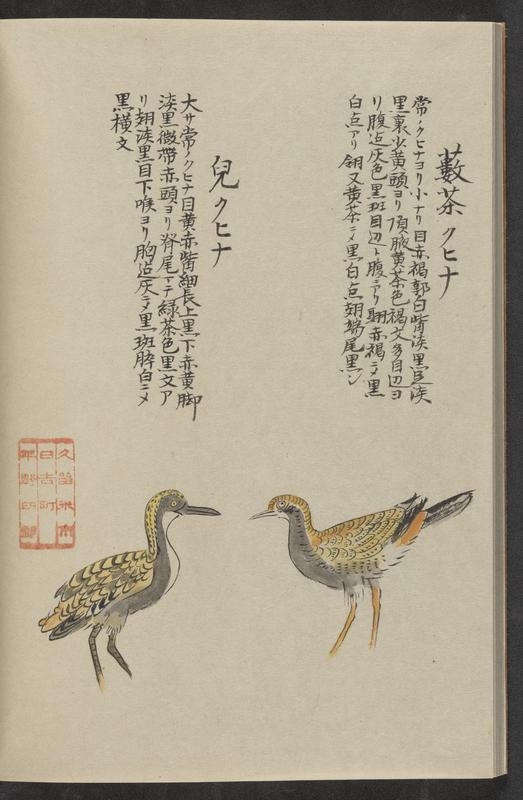 藪茶クヒナ
常ノクヒナヨリ小ナリ目赤褐郭白觜淡黒足淡
黒裏少黄頭ヨリ頂腋黄茶色褐文多目辺ヨ
リ腹迄灰色黒斑目辺ト腹ニアリ翮赤褐ニメ黒
白点アリ翎又黄茶ニメ黒白点翅端尾黒シ
兒クヒナ
大サ常ノクヒナ目黄赤觜細長上黒下赤黄脚
淡黒微帯赤頭ヨリ脊尾マテ緑茶色黒文ア
リ翅淡黒目下喉ヨリ胸迄灰ニメ黒斑脺白ニメ
黒横文
久留米市
日吉町